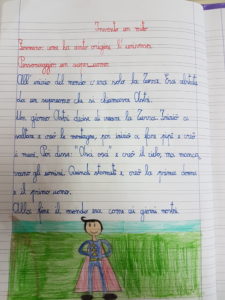 Invento un mito
Pensiero: come ha avuto origine l'universo.
Personaggio: un super-uomo
All'inizio del mondo c'era solo la Terra. Era abitata
da un superuomo che si chiamava Ostri.
Un giorno Ostri decise di creare la Terra. Iniziò a
saltare e creò le montagne, poi iniziò a fare pipì e creò
i mari. Poi disse: "Ora ora" e creò il cielo, ma manca
vano gli uomini. Quindi starnutì e creò la prima donna
e il primo uomo.
Alla fine il mondo era come ai giorni nostri.